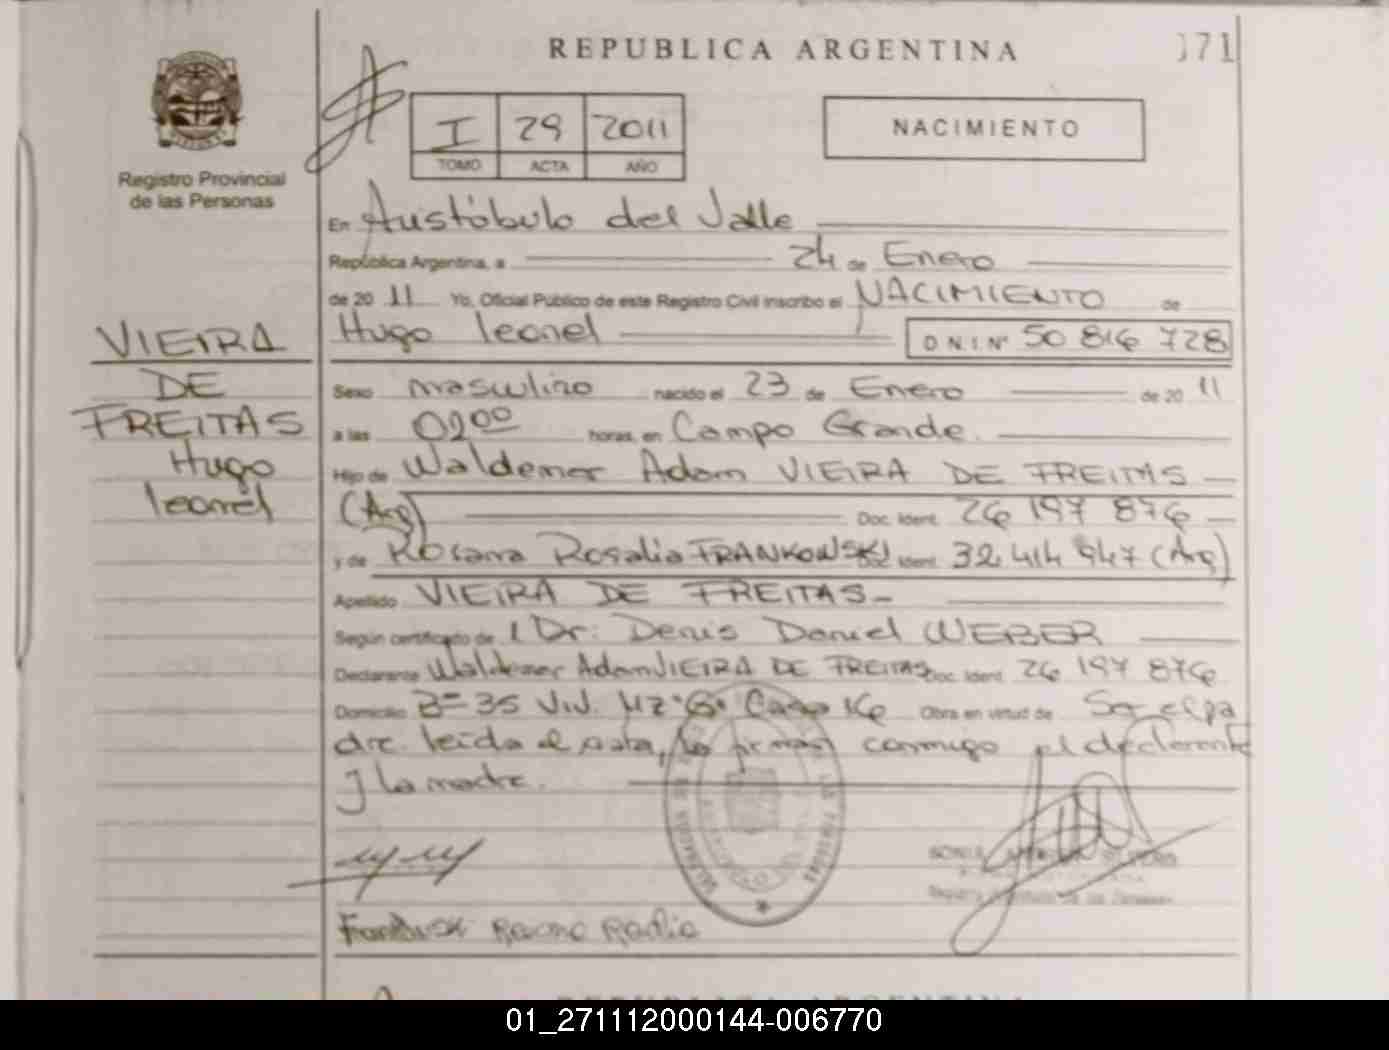 REPUBLICA ARGENTINA
071
Registro Provincial
de las Personas
I 29 2011
TOMO ACTA AÑO
NACIMIENTO
En Aristóbulo del Valle
República Argentina, a 24 de Enero
de 2011 Yo, Oficial Público de este Registro Civil inscribo el NACIMIENTO de
Hugo leonel D.N.I. Nº 50 816 728
VIEIRA
DE
FREITAS
Hugo
leonel
Sexo masculino nacido el 23 de Enero de 2011
a las 02 00 horas, en Campo Grande.
Hijo de Waldemar Adam VIEIRA DE FREITAS
(Arg) Doc. Ident. 26 197 876
y de Rosana Rosalia FRANKOWSKI Doc. Ident. 32 414 947 (Arg)
Apellido VIEIRA DE FREITAS
Según certificado de Dr: Denis Daniel WEBER
Declarante Waldemar Adam VIEIRA DE FREITAS Doc. Ident. 26 197 876
Domicilio Bº 35 Viv. Mz "G" Casa 16 Obra en virtud de Ser el pa
dre. leida el acta, la firman conmigo el declarante
y la madre.
REPUBLICA ARGENTINA
01_271112000144-006770